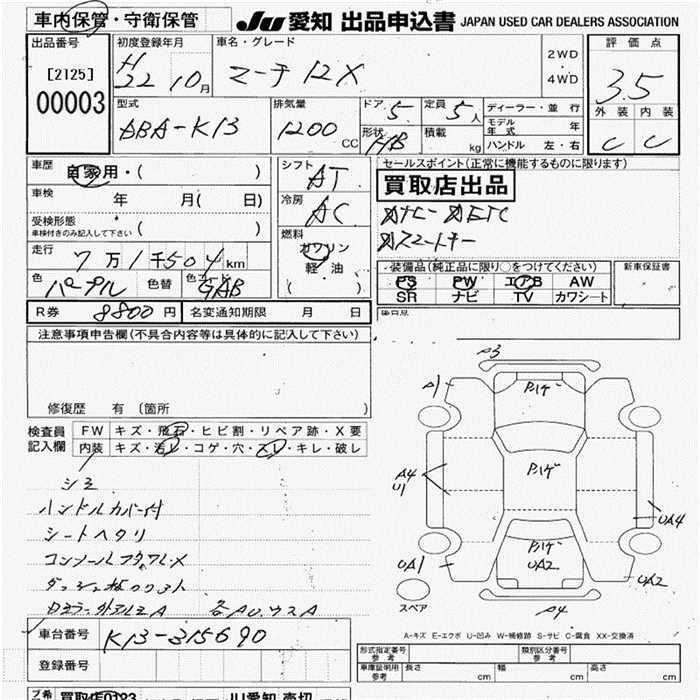 車内保管・守衛保管
JU 愛知 出品申込書 JAPAN USED CAR DEALERS ASSOCIATION
出品番号
[2125]
00003
初度登録年月
H
22 10月
車名・グレード
マーチ 12X
2WD
・
4WD
評価点
3.5
外装 内装
C C
型式
DBA-K13
排気量
1200 CC
ドア 5
定員 5人
形状 HB
積載 kg
ディーラー・並行
モデル年式 年
ハンドル 左・右
車歴 自家用・( )
車検 年 月( 日)
受検形態
車検付きのみ記入して下さい ( )
走行 7万1千504km
色 パープル 色替 色コード GAB
シフト AT
冷房 AC
燃料
ガソリン
軽・油
( )
セールスポイント(正常に機能するものに限ります)
買取店出品
装備品(純正品に限り○をつけてください)
PS PW エアB AW
SR ナビ TV カワシート
新車保証書
後日品
R券 8800円 名変通知期限 月 日
注意事項申告欄(不具合内容等は具体的に記入して下さい)
修復歴 有 〔箇所 〕
検査員
記入欄
FW キズ・飛石・ヒビ割・リペア跡・X要
内装 キズ・汚レ・コゲ・穴・スレ・キレ・破レ
シミ
ハンドルカバー付
シートヘタリ
A3
A1
A4
U1
UA1
UA4
UA2
A4
Pハゲ
Pハゲ
Pハゲ
UA2
スペア
A-キズ E-エクボ U-凹み W-補修跡 S-サビ C-腐食 XX-交換済
車台番号 K13-315690
登録番号
形式指定番号 参考
類別区分番号 参考
車庫証明用 参考 長さ cm 幅 cm 高さ cm
買取店0123
JU愛知